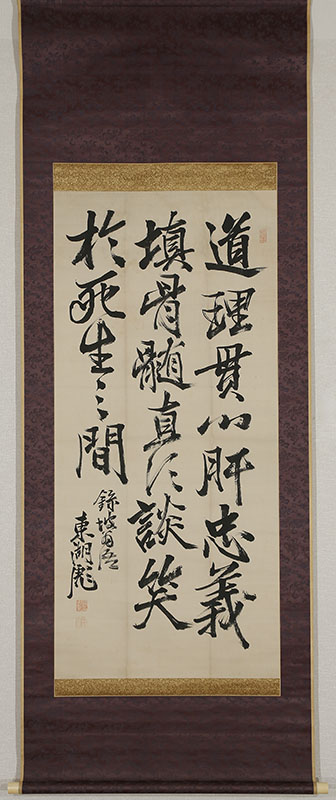 道理貫心肝忠義
填骨髄直須談笑
於死生之間
録坡翁語
東湖彪